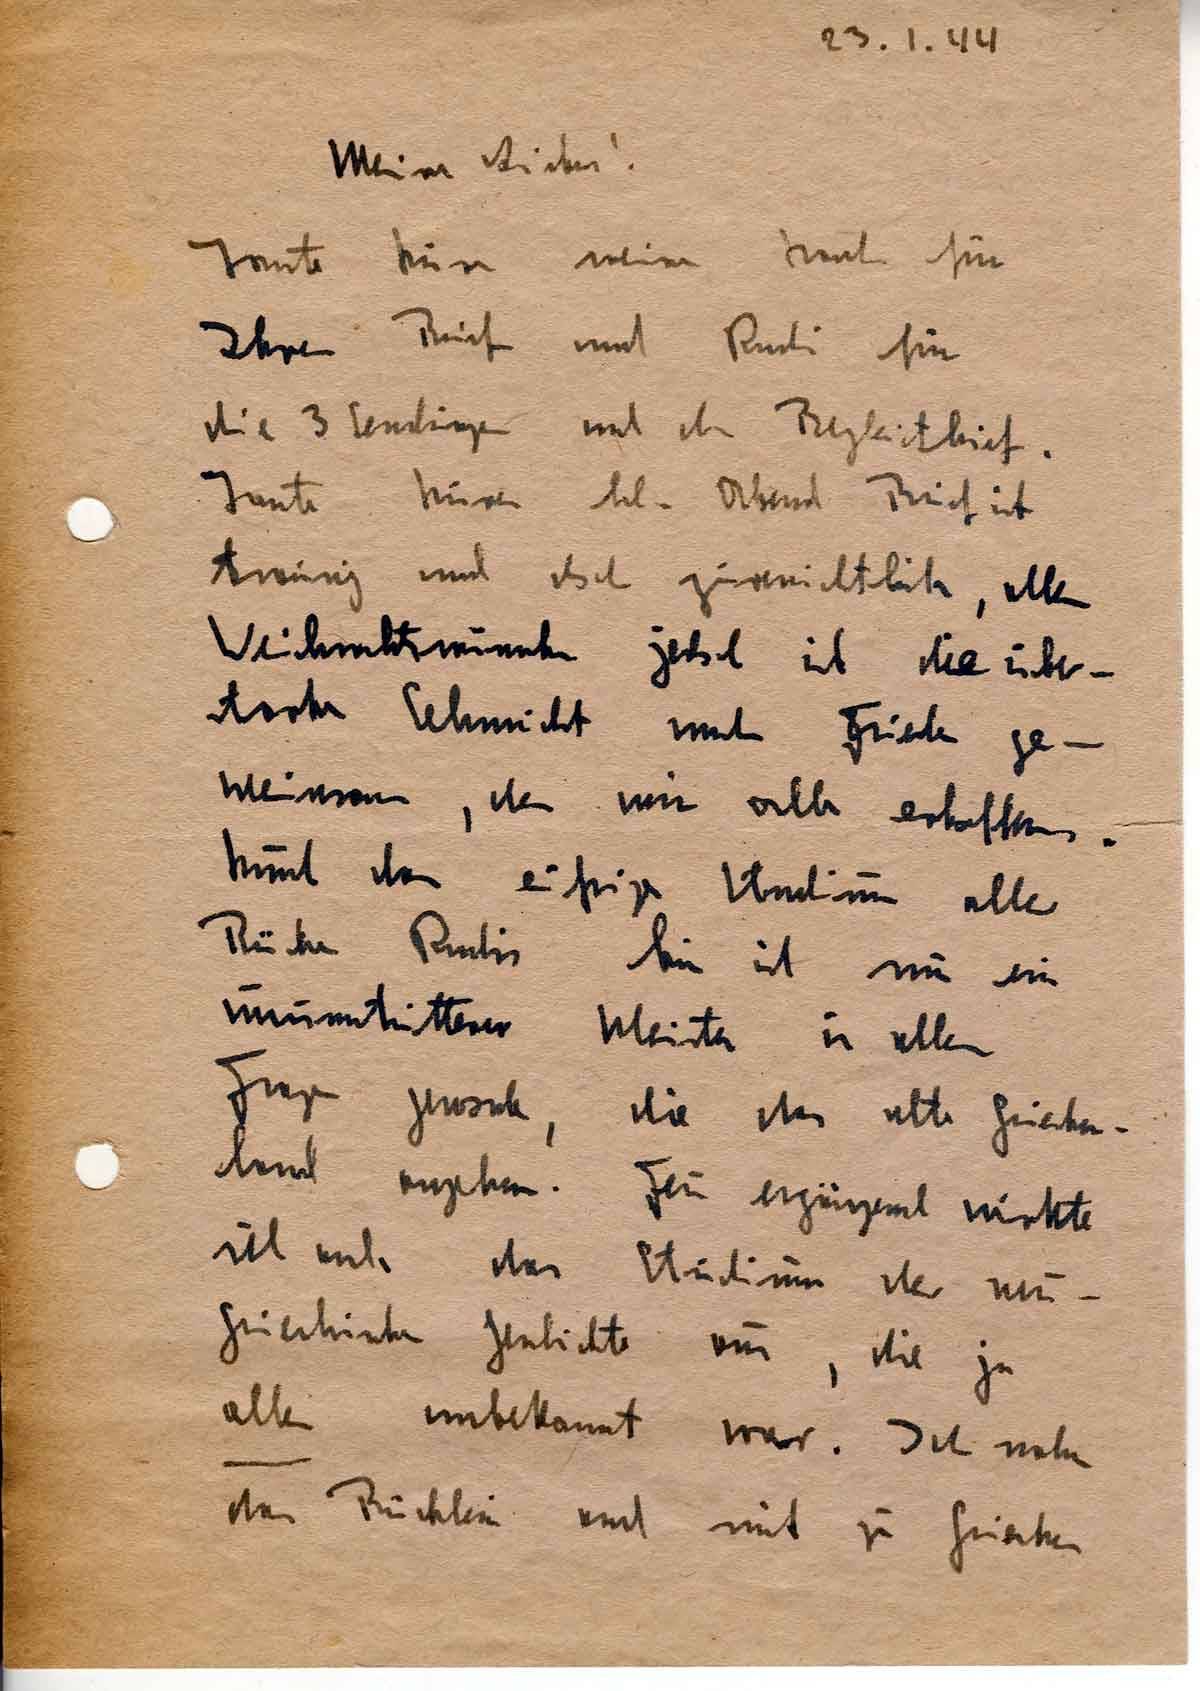 23.1.44
Meine Lieben!
Tante meinen Dank für
Ihren Brief und Rudi für
die 3 Sendungen und den Begleitbrief.
Tante Brief ist
traurig und doch zuversichtlich, allen
Weihnachtswünschen jedoch ist die über-
starke Sehnsucht nach Frieden ge-
meinsam, den wir alle erhoffen.
Durch das eifrige Studium aller
Bücher Rudis bin ich nun ein
unumstrittener Meister in allen
Fragen geworden, die das alte Griechen-
land angehen. Fein ergänzend wirkte
sich auch das Studium der neu-
griechischen Geschichte aus, die ja
allen unbekannt war. Ich nahm
das Büchlein auch mit zu Griechen